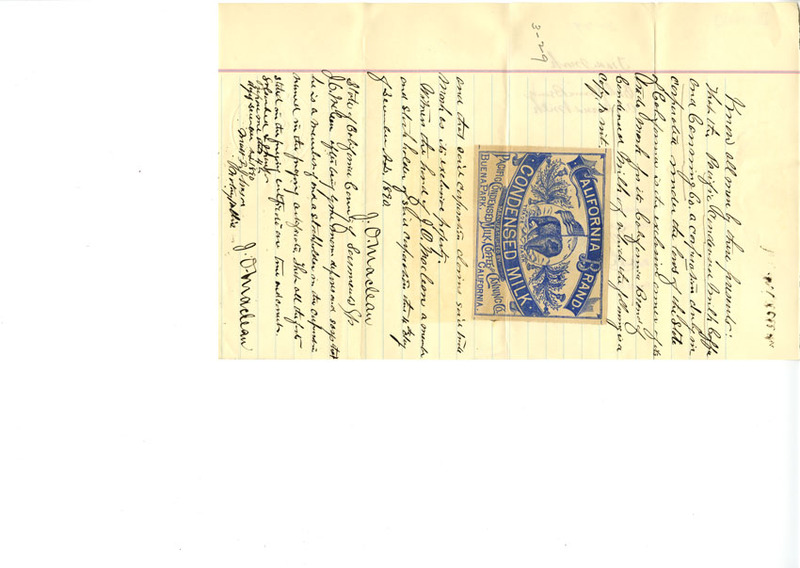 Know all men by these presents:
That the Pacific Condensed Milk, Coffee
and Canning Co. a corporation duly in
corporated under the laws of the State
of California is the exclusive owner of its
trade mark for its California Brand
Condensed Milk of which the following is a
copy to wit:
CALIFORNIA BRAND
CONDENSED MILK
PACIFIC CONDENSED MILK, COFFEE & CANNING CO.
BUENA PARK, CALIFORNIA.
and that said corporation claims said trade
mark as its exclusive property.
Witness the hand of J. O. Maclean a member
and stock holder of said corporation this 4th day
of December A.D. 1890.
J. O. Maclean
State of California County of Sacramento SS
J. O. Maclean after being sworn deposes and says that
he is a member of and a stockholder in the corporation
named in the foregoing certificate that all the facts
stated in the foregoing certificate are true
Subscribed & sworn
before me this 4th
day December A.D. 1890
Notary Public
J. O. Maclean
3-29